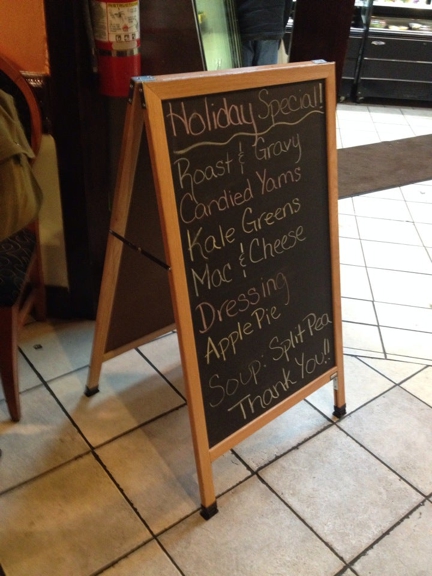 Holiday Special!!
Roast & Gravy
Candied Yams
Kale Greens
Mac & Cheese
Dressing
Apple Pie
Soup: Split Pea
Thank You!!